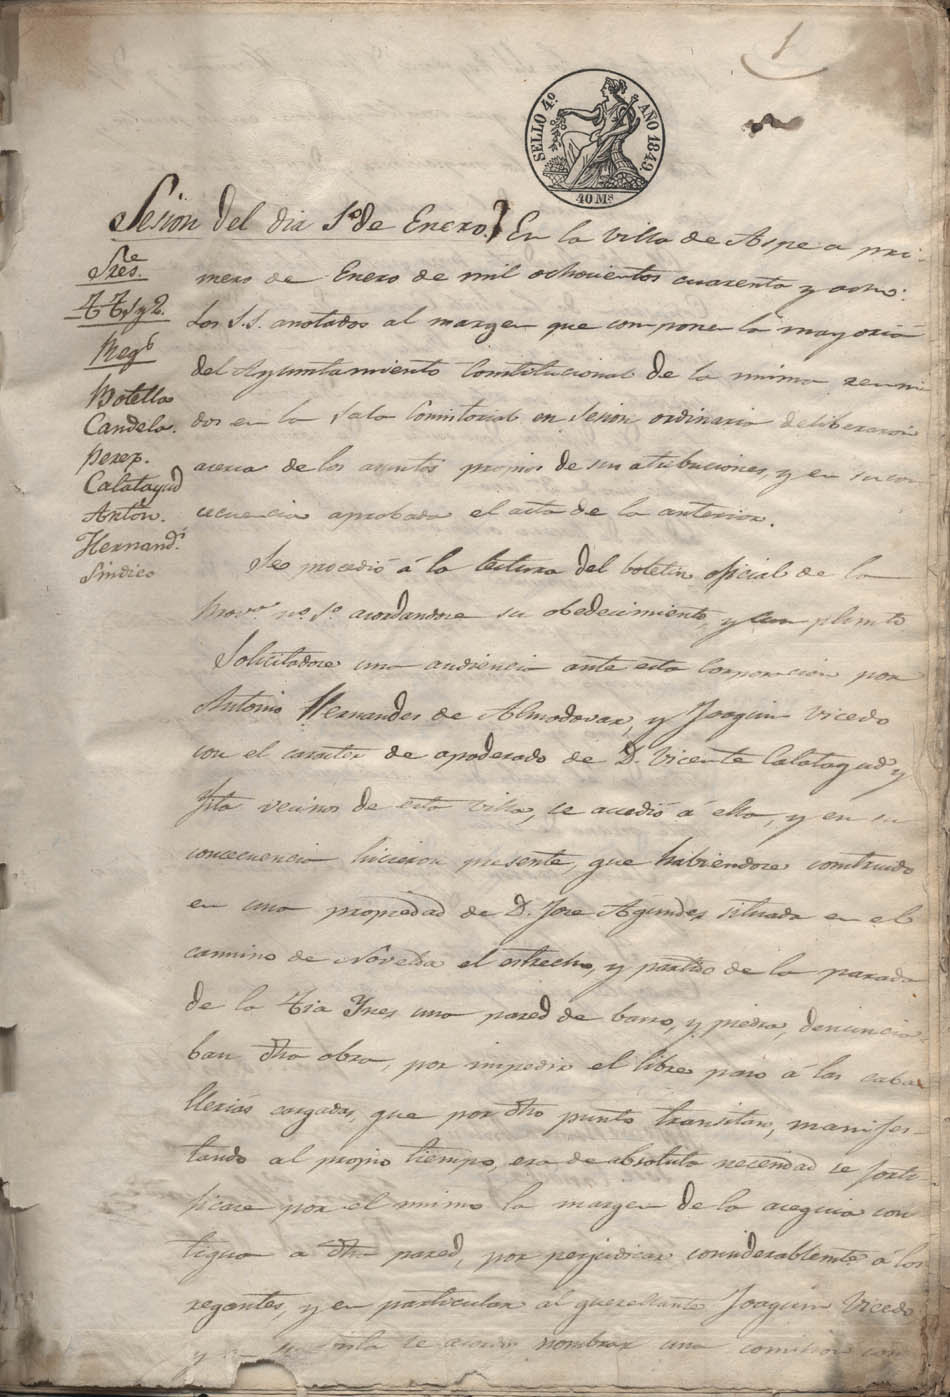 1
SELLO 4º AÑO 1849.
40 Ms
Sesion del dia 1º de Enero. En la villa de Aspe a pri-
mero de Enero de mil ochocientos cuarenta y ocho:
Los S.S. anotados al margen que componen la mayoria
del Ayuntamiento Constitucional de la misma reuni
dos en la sala Consistorial en sesion ordinaria deliberaron
acerca de los asuntos propios de sus atribuciones, y en su con
secuencia aprobada el acta de la anterior.
Sres.
TT. 1 y 2.
Reg.
Botella
Candela.
Perez.
Calatayud
Antón.
Hernand.
Sindico
Se procedió á la lectura del boletin oficial de la
Prov.ª nº 1º acordandose su obedecimiento, y cumplimto
Solicitadose una audiencia ante esta Corporacion por
Antonio Hernandes de Almodovar, y Joaquin Vicedo
con el caracter de apoderado de D. Vicente Calatayud y
vecinos de esta villa, se accedió á ella, y en su
concecuencia hicieron presente, que habiendose construido
en una propiedad de D. Jose situada en el
camino de Novelda el estrecho, y partido de la parada
de la Tia Ynes una pared de barro, y piedra, denuncia
ban dha obra, por impedir el libre paso á las caba
llerias cargadas, que por dho punto transitan, manifes-
tando al propio tiempo, era de absoluta necesidad se forti
ficase por el mismo la margen de la acequia con
tigua a dha pared, por perjudicar considerablemte á los
regantes, y en particular al querellante Joaquin Vicedo
y en su vista se acordo nombrar una comision con